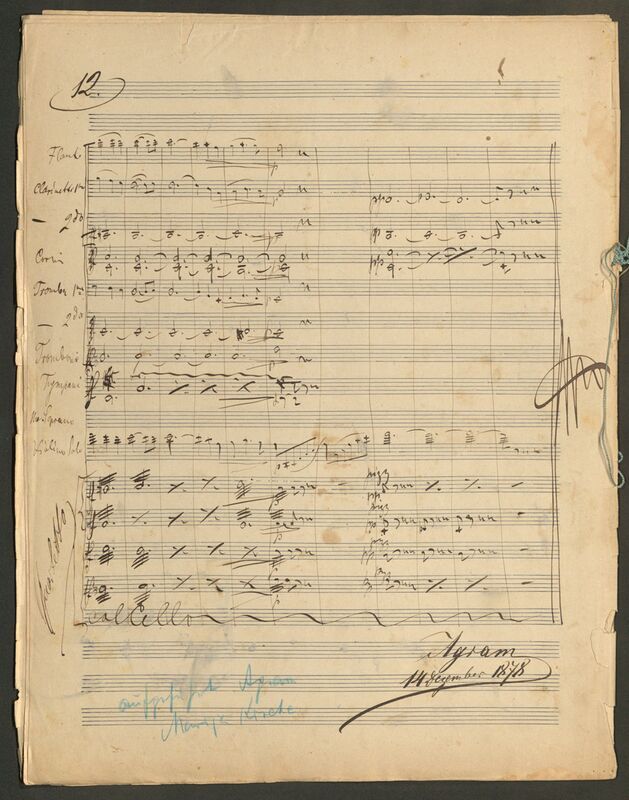 12.
Flauti
Clarinetto 1mo
2do
Corni
Trombe 1ma
2do
Tromboni
Tympani
Mez. Soprano
Violino Solo
col Cello
Agram
14 Dezember 1878
aufgeführt Agram
Kirche